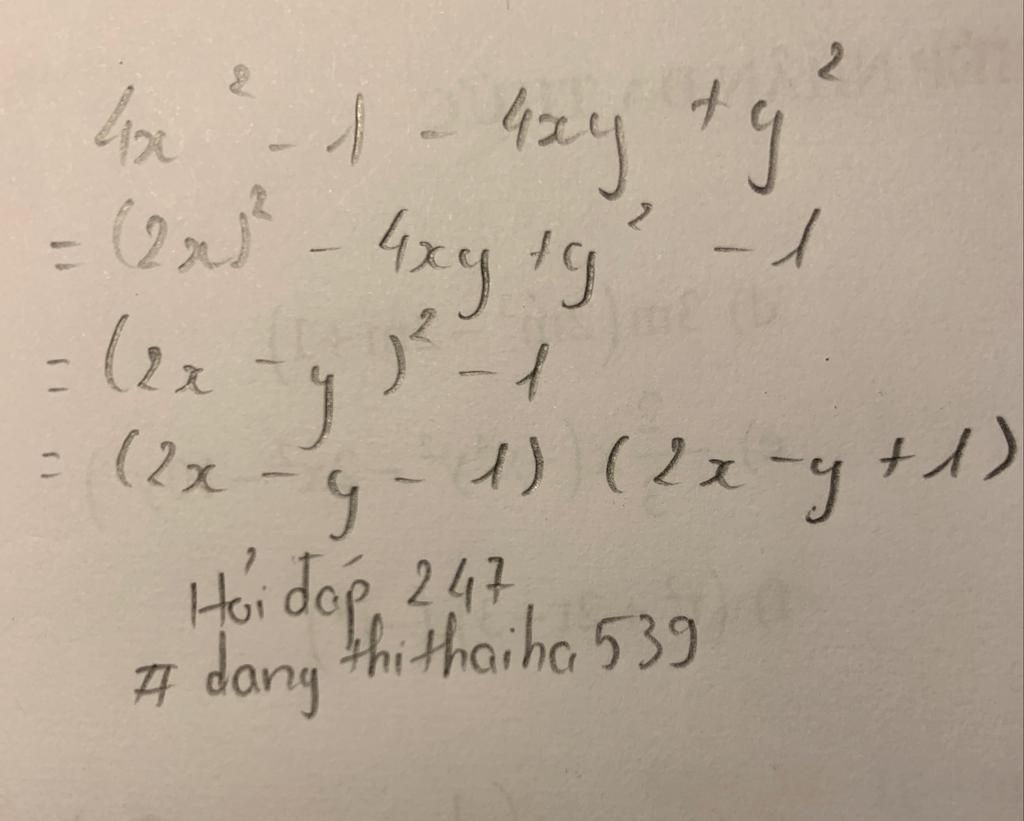 4x² - 1 - 4xy + y²
= (2x)² - 4xy + y² - 1
= (2x - y)² - 1
= (2x - y - 1) (2x - y + 1)
Hỏi đáp 247
# dang thithaiha 539